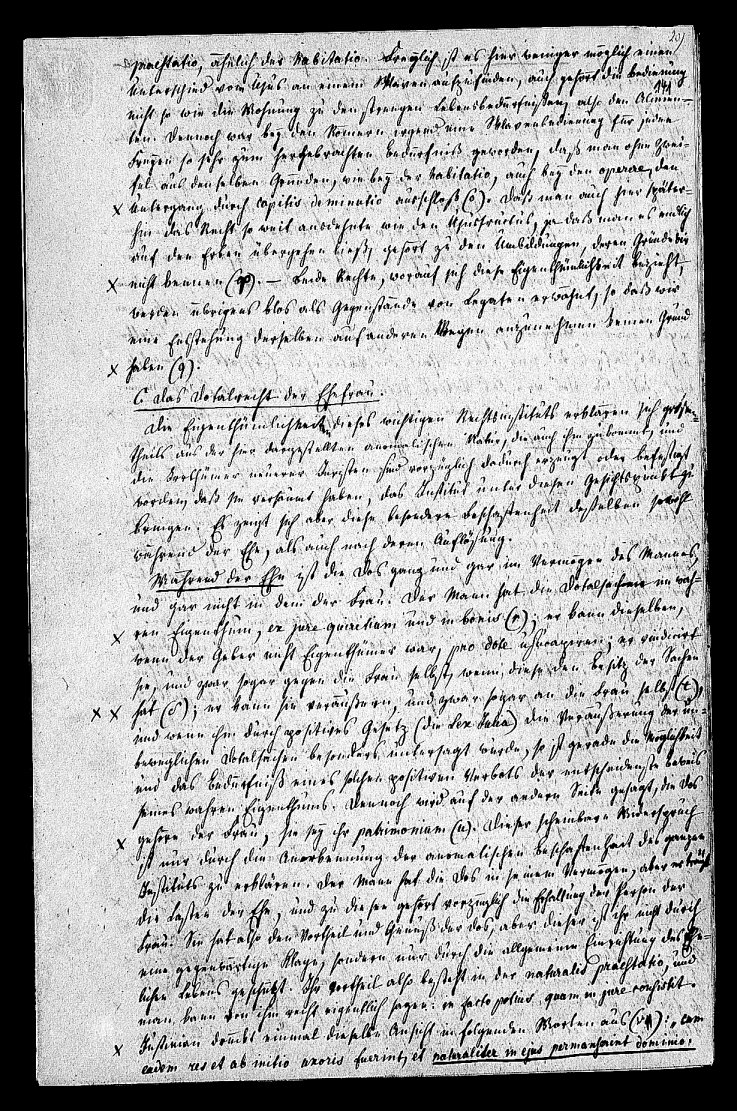 20)
praestatio, ähnlich der habitatio. Freylich ist es hier weniger möglich einen
Unterschied vom Usus an einem Sklaven aufzufinden, auch gehört die Bedienung
141
nicht so wie die Wohnung zu den strengen Lebensbedürfnissen, also den Alimen-
ten. Dennoch war bey den Römern irgend eine Sklavenbedienung für jeden
Freyen so sehr zum hergebrachten Bedürfniß geworden, daß man ohne Zwei-
fel aus denselben Gründen, wie bey der habitatio, auch bey den operae, den
x Untergang durch capitis deminutio ausschloß (o). Daß man auch hier später-
hin das Recht so weit ausdehnte wie den Ususfructus, ja daß man es endlich
auf den Erben übergehen ließ, gehört zu den Umbildungen, deren Gründe wir
x nicht kennen (p). — Beide Rechte, worauf sich diese Eigenthümlichkeit bezieht,
werden übrigens blos als Gegenstände von Legaten erwähnt, so daß wir
eine Entstehung derselben auf anderen Wegen anzunehmen keinen Grund
x haben (q).
C. Das Dotalrecht der Ehefrau.
Die Eigenthümlichkeiten dieses wichtigen Rechtsinstituts erklären sich großen-
theils aus der hier dargestellten anomalischen Natur, die auch ihm zukommt, und
die Irrthümer neuerer Juristen sind vorzüglich dadurch erzeugt oder befestigt
worden, daß sie versäumt haben, das Institut unter diesen Gesichtspunkt zu
bringen. Es zeigt sich aber diese besondere Beschaffenheit desselben sowohl
während der Ehe, als auch nach deren Auflösung.
Während der Ehe ist die Dos ganz und gar im Vermögen des Mannes,
und gar nicht in dem der Frau. Der Mann hat die Dotalsachen im wah-
x ren Eigenthum, ex jure quiritium und in bonis (r); er kann dieselben,
wenn der Geber nicht Eigenthümer war, pro dote usucapiren; er vindicirt
sie, und zwar sogar gegen die Frau selbst, wenn diese den Besitz der Sachen
x x hat (s); er kann sie veräußern, und zwar sogar an die Frau selbst (t),
und wenn ihm durch positives Gesetz (die Lex Julia) die Veräußerung der un-
beweglichen Dotalsachen besonders untersagt wurde, so ist gerade die Möglichkeit
und das Bedürfniß eines solchen positiven Verbots der entscheidenste Beweis
seines wahren Eigenthums. Dennoch wird auf der andern Seite gesagt, die Dos
x gehöre der Frau, sie sey ihr patrimonium (u). Dieser scheinbare Widerspruch
ist nur durch die Anerkennung der anomalischen Beschaffenheit des ganzen
Instituts zu erklären. Der Mann hat die Dos in seinem Vermögen, aber er trägt
die Lasten der Ehe, und zu diesen gehört vorzüglich die Erhaltung der Person der
Frau. Sie hat also den Vortheil und Genuß der dos, aber dieser ist ihr nicht durch
eine gegenwärtige Klage, sondern nur durch die allgemeine Einrichtung des Ehe-
lichen Lebens geschützt. Ihr Vortheil also besteht in der naturalis praestatio, und
man kann von ihm recht eigentlich sagen: in facto potius, quam in jure consistit.
x Justinian drückt einmal dieselbe Ansicht in folgenden Worten aus (v): „cum
eaedem res et ab initio uxoris fuerint, et naturaliter in ejus permanserint dominio."